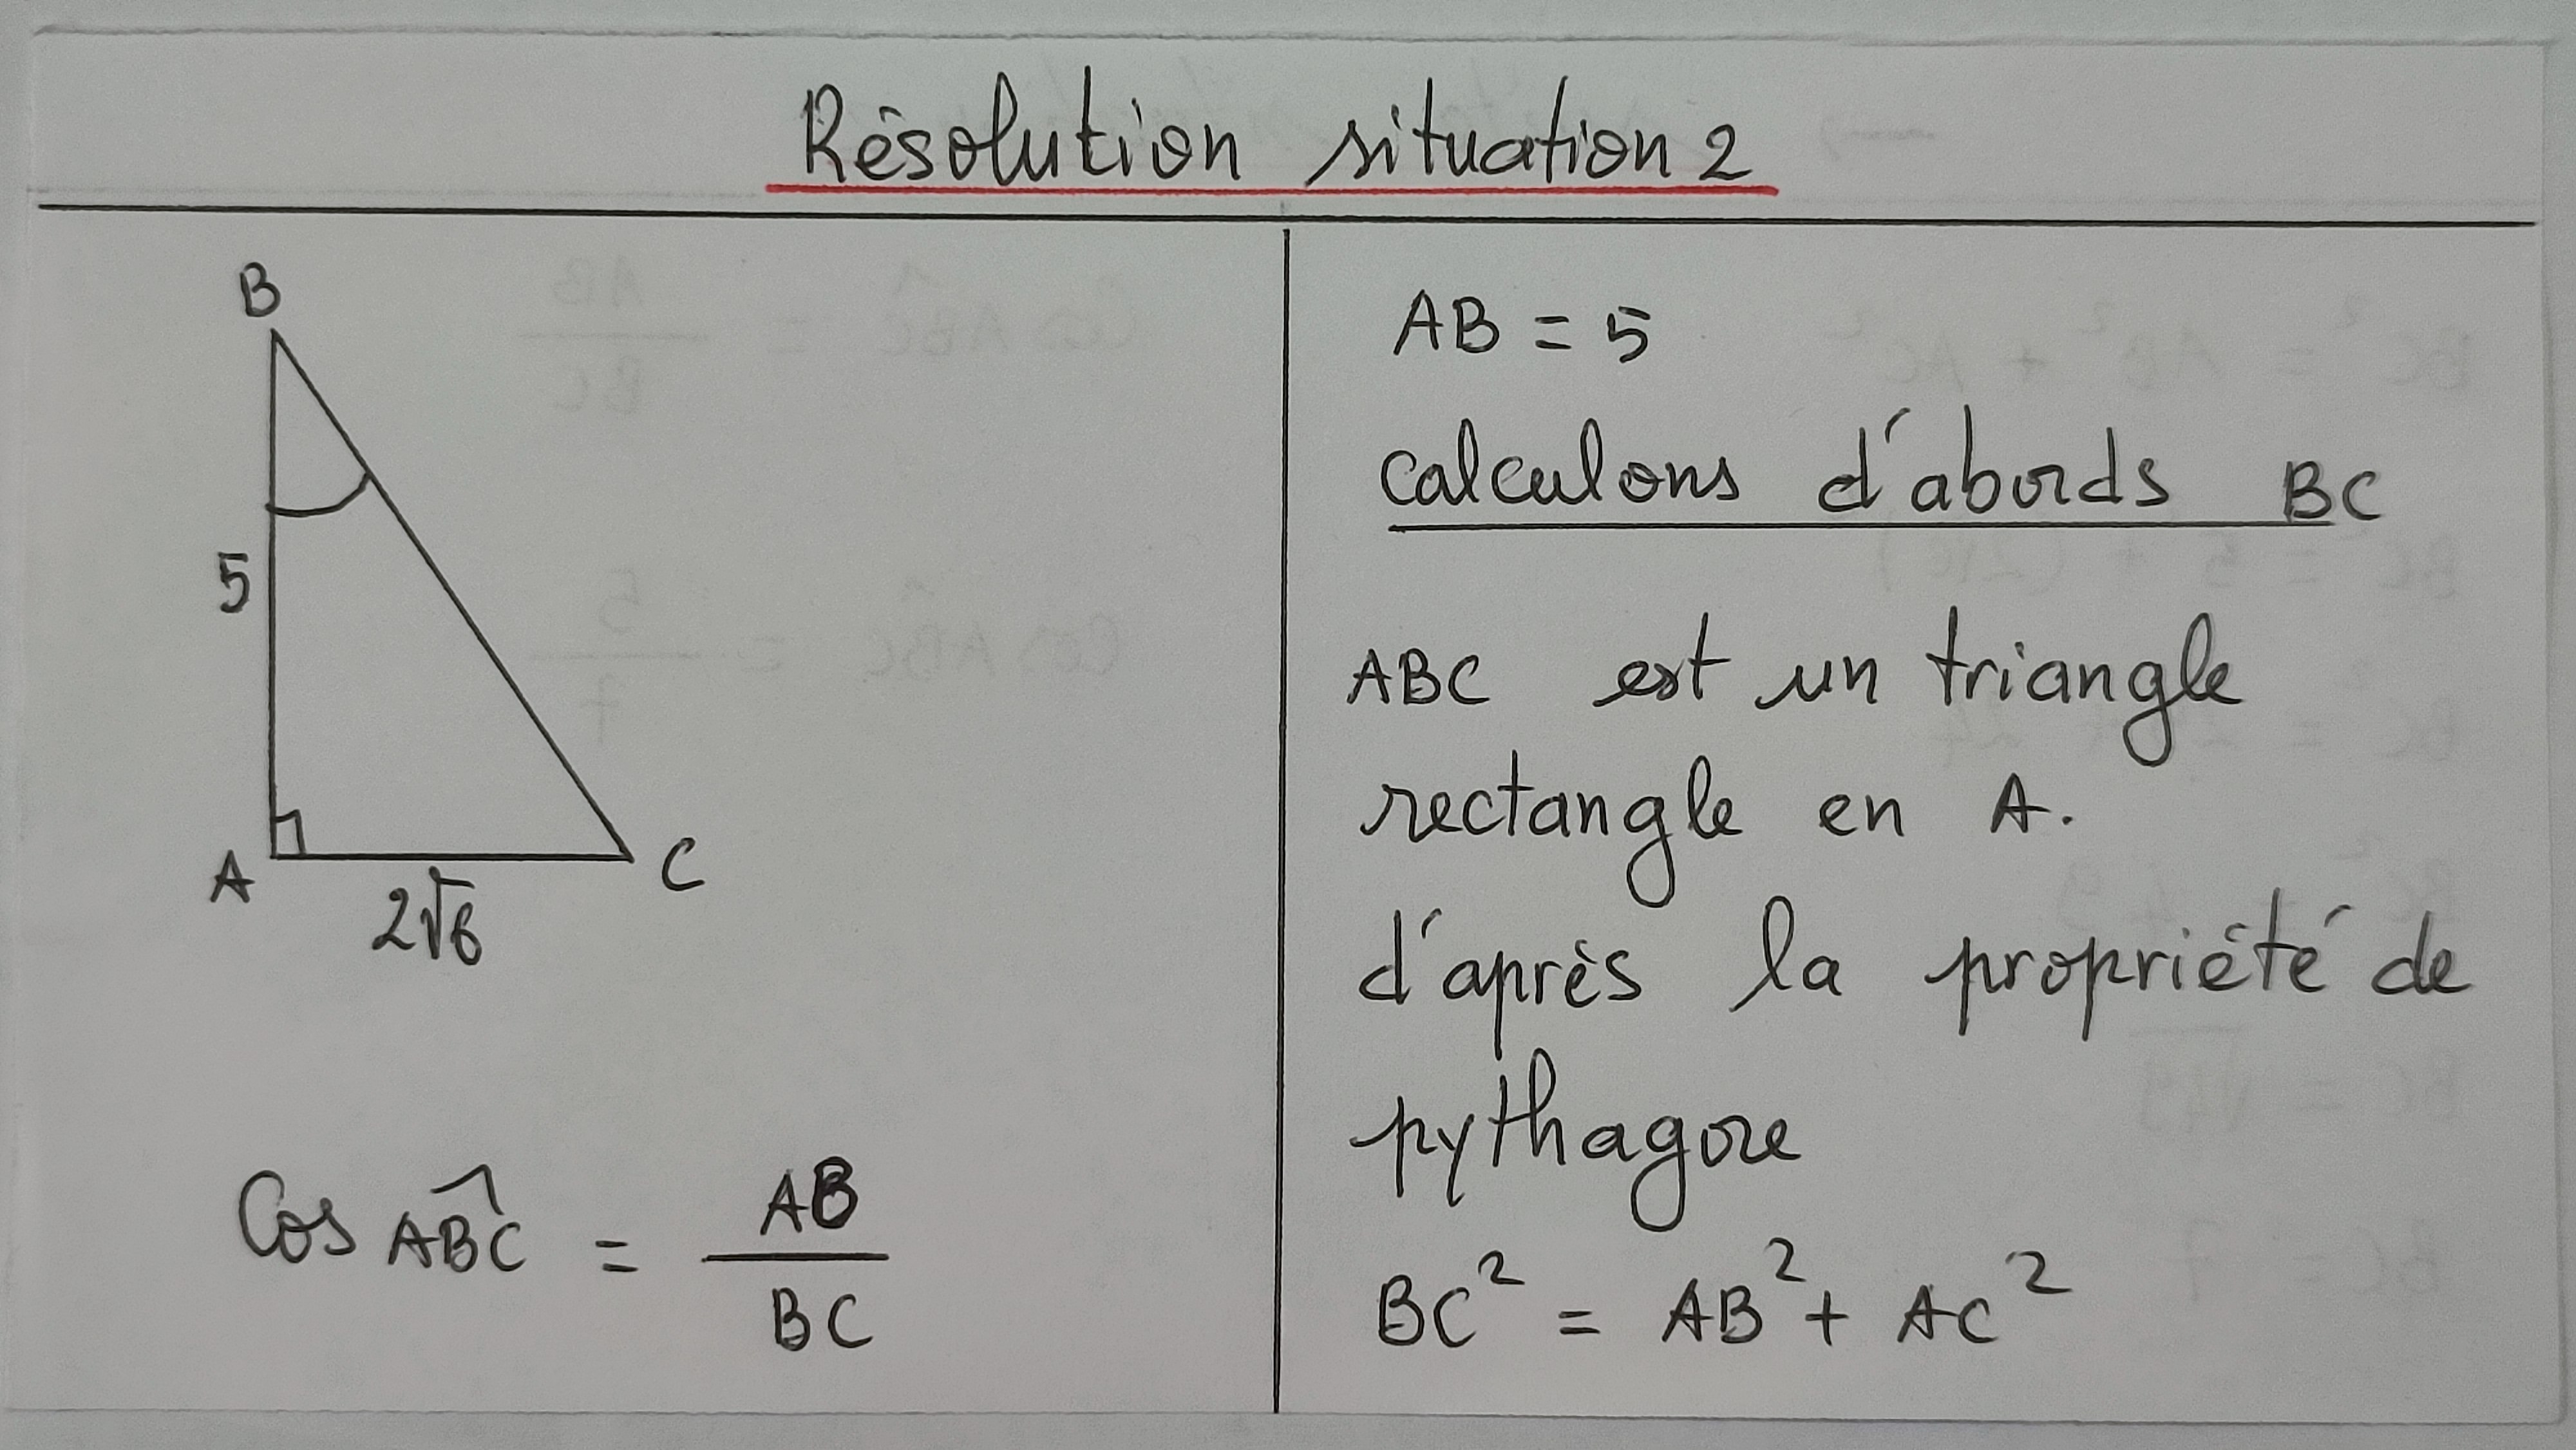 Résolution situation 2
B
5
A
C
2√6
Cos ABC^ = AB / BC
AB = 5
calculons d'abords BC
ABC est un triangle
rectangle en A.
d'après la propriété de
pythagore
BC² = AB² + AC²